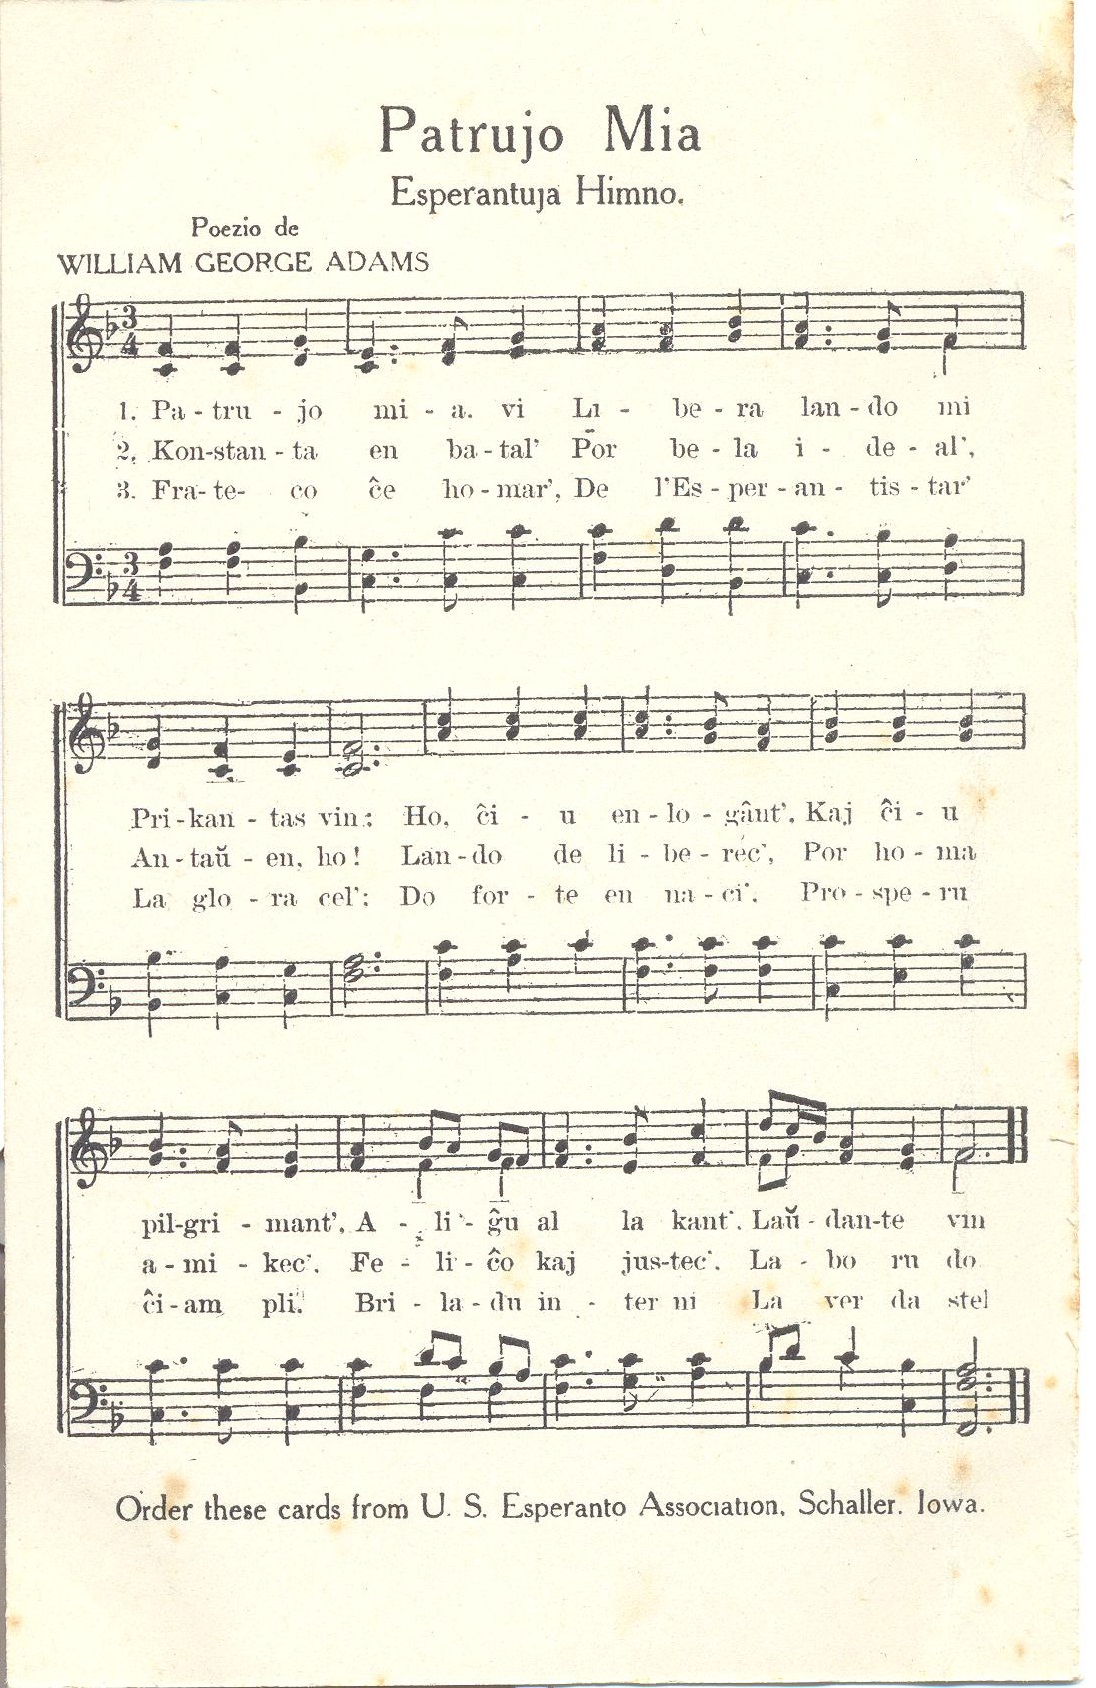 Patrujo Mia
Esperantuja Himno.
Poezio de
WILLIAM GEORGE ADAMS
3
4
1. Pa - tru - jo mi - a. vi Li - be - ra lan - do mi
2. Kon-stan - ta en ba - tal' Por be - la i - de - al',
3. Fra- te- co ĉe ho - mar', De l'Es - per - an - tis - tar'
3
4
Pri - kan - tas vin: Ho, ĉi - u en - lo - gânt'. Kaj ĉi - u
An - taŭ - en, ho! Lan - do de li - be - rec', Por ho - ma
La glo - ra cel'; Do for - te en na - ci'. Pro - spe - ru
pil-gri - mant'. A - li - ĝu al la kant'. Laŭ - dan-te vin
a - mi - kec'. Fe - li - ĉo kaj jus-tec'. La - bo ru do
ĉi - am pli. Bri - la - du in - ter ni La ver da stel
Order these cards from U. S. Esperanto Association, Schaller. Iowa.